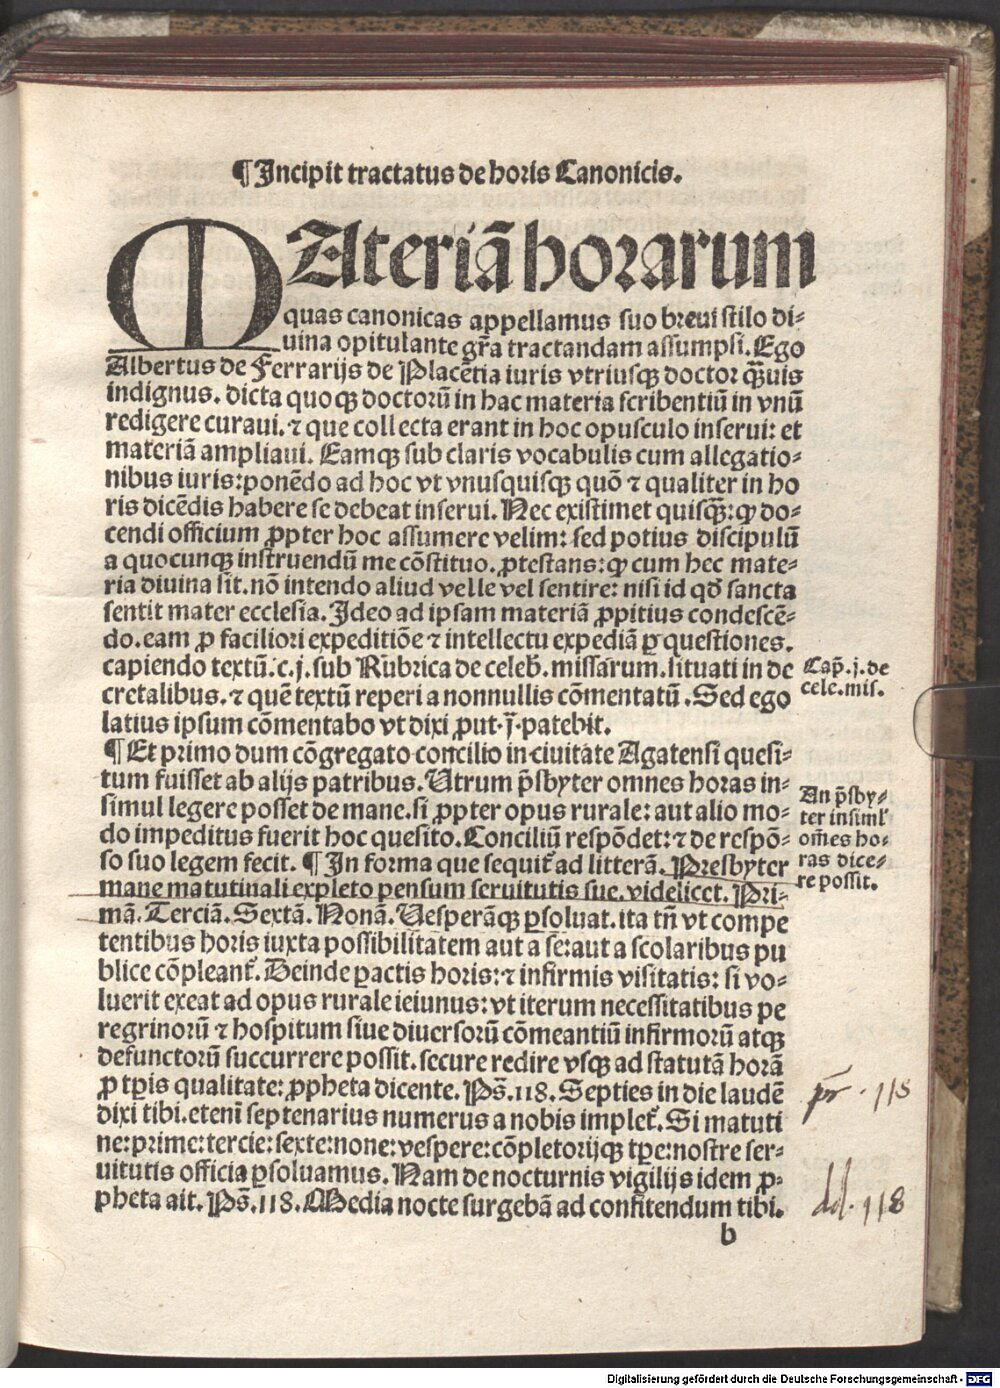 ¶Incipit tractatus de horis Canonicis.
MAteriã horarum
quas canonicas appellamus suo breui stilo di-
uina opitulante gr̃a tractandam assumpsi. Ego
Albertus de Ferrarijs de Placẽtia iuris vtriusqꝫ doctor qꝫ̃uis
indignus. dicta quoqꝫ doctorũ in hac materia scribentiũ in vnũ
redigere curaui. ⁊ que collecta erant in hoc opusculo inserui: et
materiã ampliaui. Eamqꝫ sub claris vocabulis cum allegatio-
nibus iuris: ponẽdo ad hoc vt vnusquisqꝫ quõ ⁊ qualiter in ho
ris dicẽdis habere se debeat inserui. Nec existimet quisqꝫ̃: ꝙ do-
cendi officium ꝓpter hoc assumere velim: sed potius discipulũ
a quocunqꝫ instruendũ me cõstituo. ꝓtestans: ꝙ cum hec mate-
ria diuina sit. nõ intendo aliud velle vel sentire: nisi id qd̃ sancta
sentit mater ecclesia. Ideo ad ipsam materiã ꝓpitius condescẽ-
do. eam ꝓ faciliori expeditiõe ⁊ intellectu expediã ꝑ questiones.
capiendo textũ. c. j. sub Rubrica de celeb̃. missarum. situati in de
cretalibus. ⁊ quẽ textũ reperi a nonnullis cõmentatũ. Sed ego
latius ipsum cõmentabo vt dixi ꝓut. j̃. patebit.
Cap̃. j. de
cele. mis.
¶Et primo dum cõgregato concilio in ciuitate Agatensi quesi-
tum fuisset ab alijs patribus. Utrum p̃sbyter omnes horas in-
simul legere posset de mane. si ꝓpter opus rurale: aut alio mo-
do impeditus fuerit hoc quesito. Conciliũ respõdet: ⁊ de respõ-
so suo legem fecit. ¶In forma que sequit̃ ad litterã. Presbyter
mane matutinali expleto pensum seruitutis sue. videlicet. Pri-
mã. Terciã. Sextã. Nonã. Uesperãqꝫ ꝑsoluat. ita tñ vt compe
tentibus horis iuxta possibilitatem aut a se: aut a scolaribus pu
blice cõpleant̃. Deinde ꝑactis horis: ⁊ infirmis visitatis: si vo-
luerit exeat ad opus rurale ieiunus: vt iterum necessitatibus pe
regrinorũ ⁊ hospitum siue diuersorũ cõmeantiũ infirmorũ atqꝫ
defunctorũ succurrere possit. secure redire vsqꝫ ad statutã horã
ꝓ tꝑis qualitate: ꝓpheta dicente. Ps̃. 118. Septies in die laudẽ
dixi tibi. etenĩ septenarius numerus a nobis implet̃. Si matuti
ne: prime: tercie: sexte: none: vespere: cõpletorijqꝫ tꝑe: nostre ser-
uitutis officia ꝑsoluamus. Nam de nocturnis vigilijs idem ꝓ-
pheta ait. Ps̃. 118. Media nocte surgebã ad confitendum tibi.
b
An p̃sby-
ter insiml̃
om̃es ho-
ras dice-
re possit.
118
118
Digitalisierung gefördert durch die Deutsche Forschungsgemeinschaft - DFG